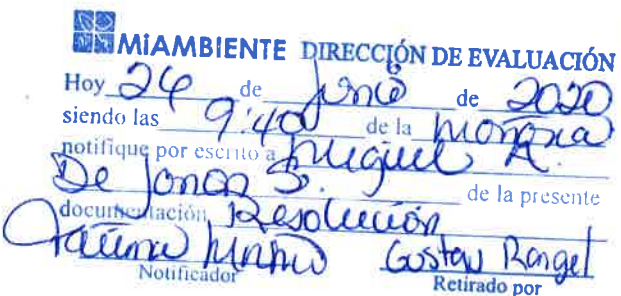 MiAMBIENTE DIRECCIÓN DE EVALUACIÓN
Hoy 26 de Junio de 2020
siendo las 9:40 de la mañana
notifique por escrito a Miguel A.
De Janon S. de la presente
documentación Resolución
Gustav Rangel
Notificador Retirado por